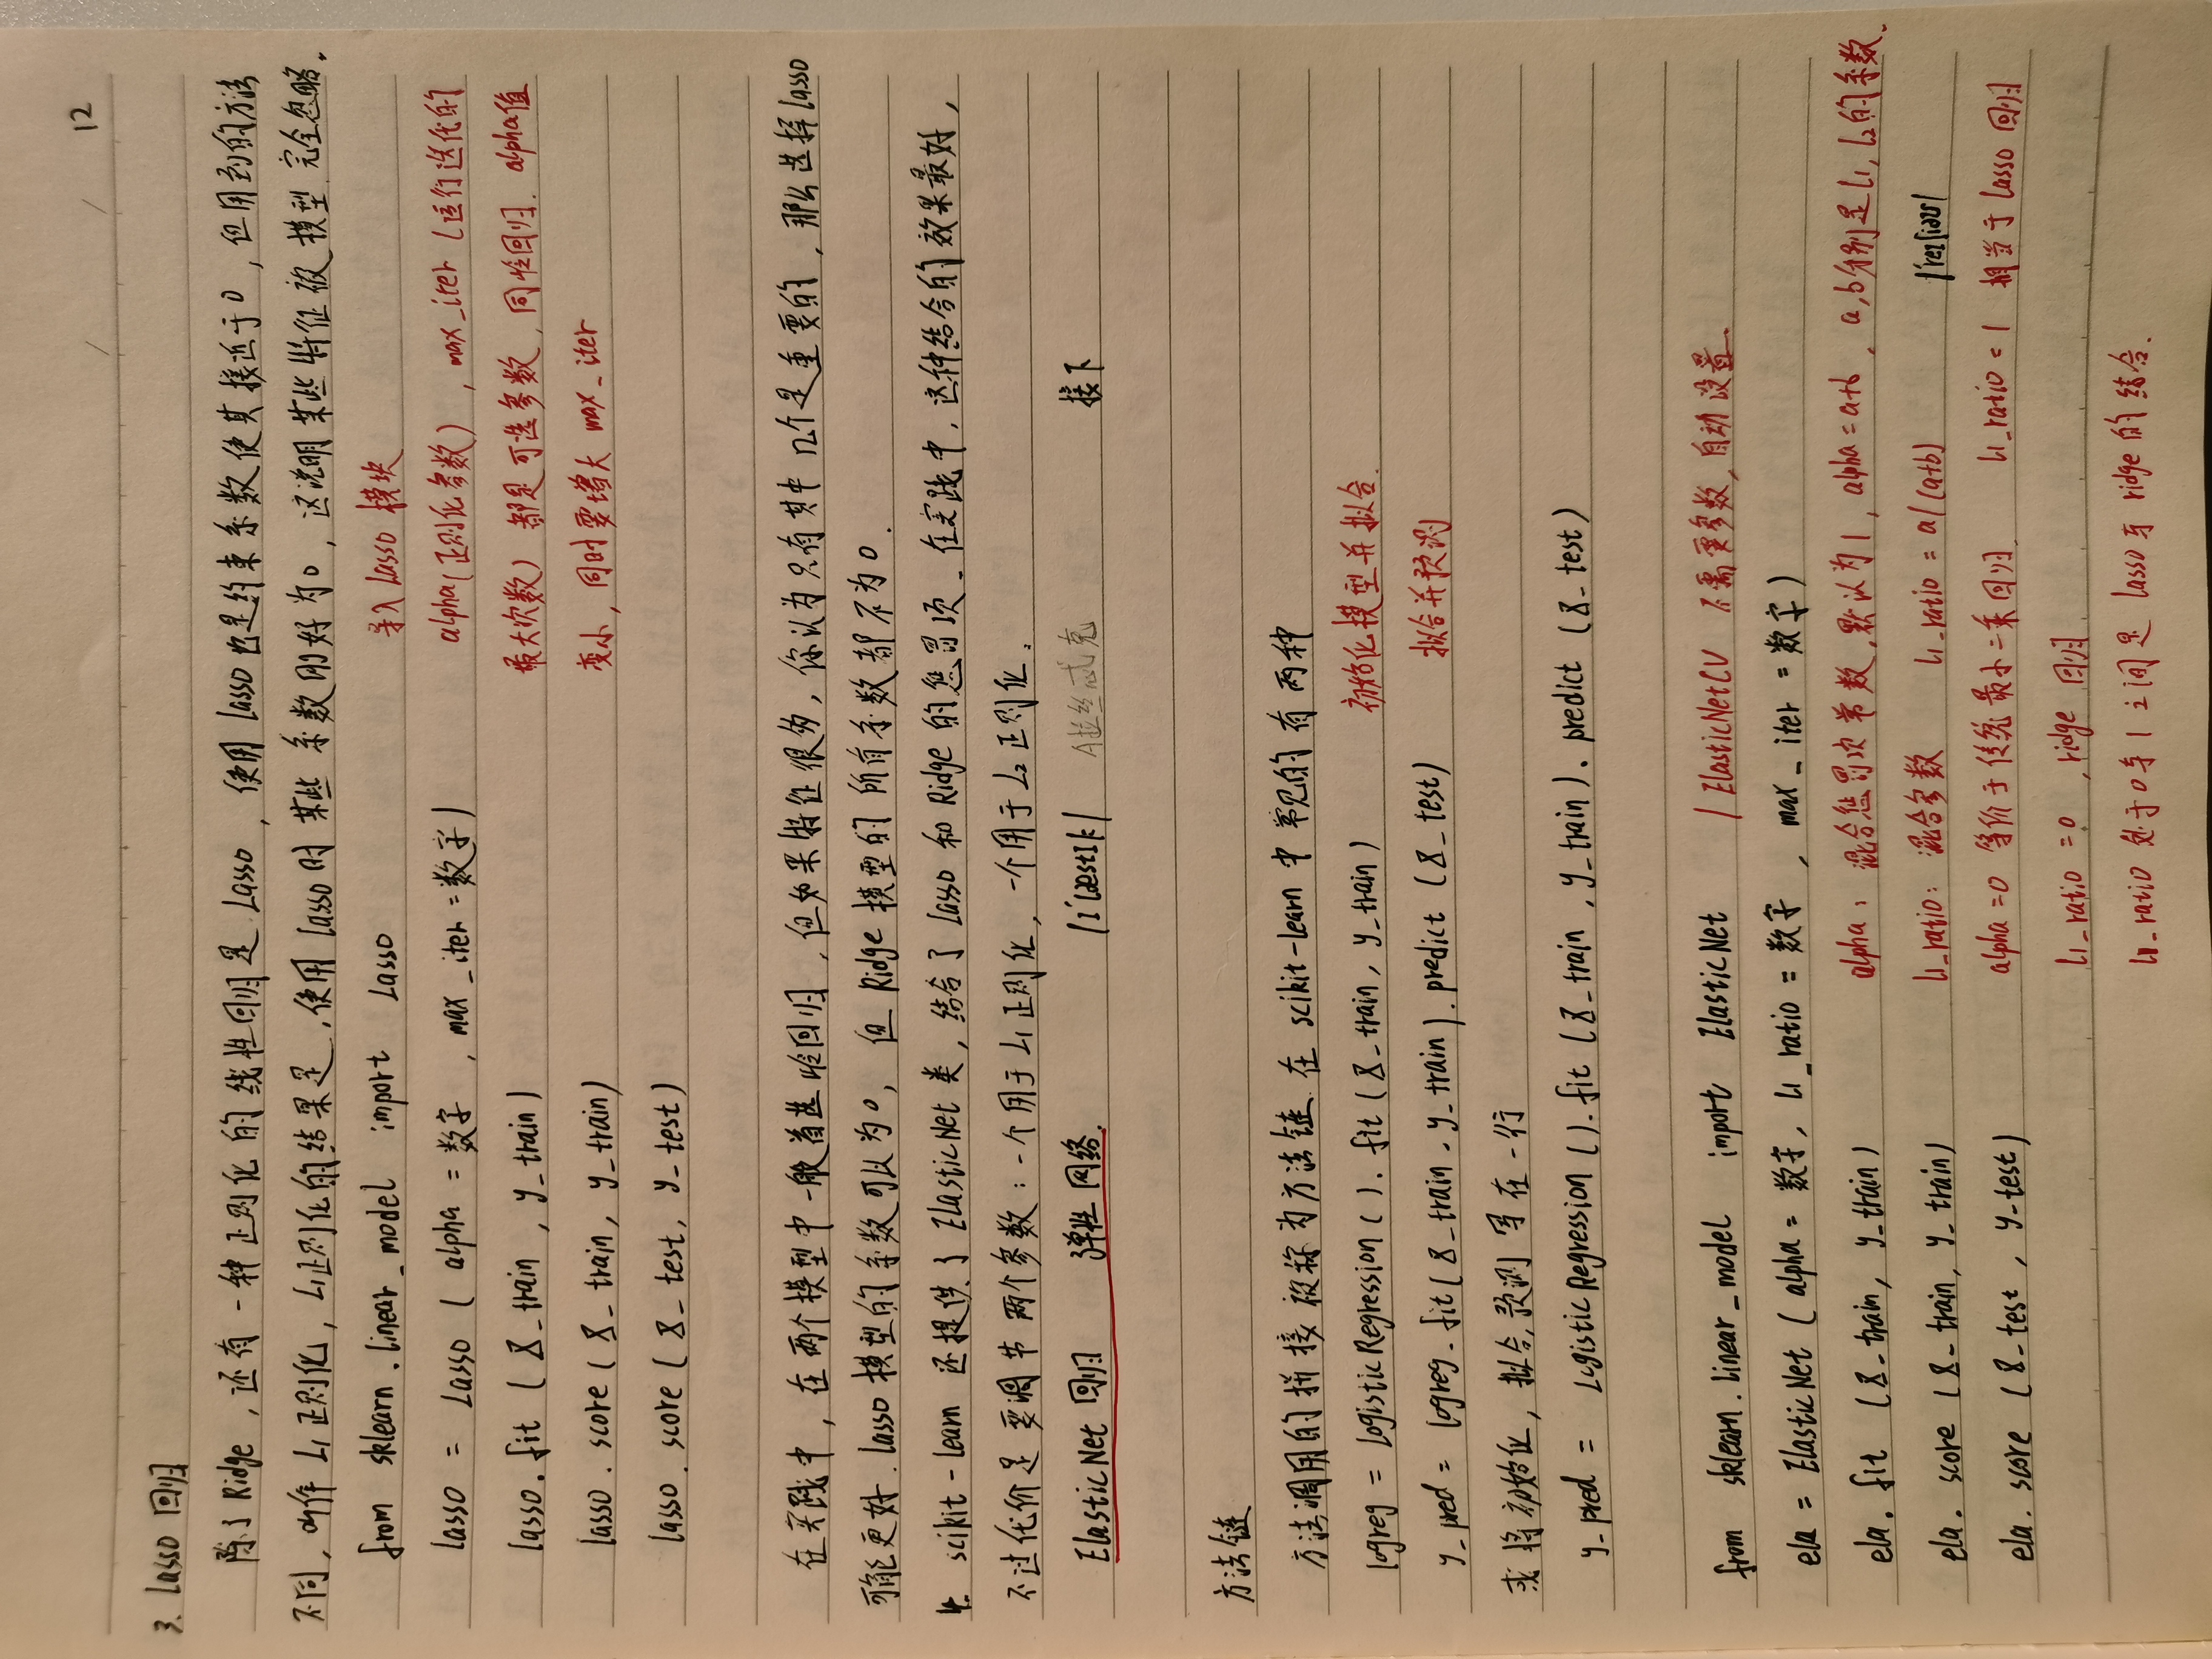 12
3. Lasso 回归
除了Ridge，还有一种正则化的线性回归是Lasso，使用lasso也是约束系数使其接近于0，但用到的方法
不同，叫作L1正则化，L1正则化的结果是，使用lasso时某些系数刚好为0，这说明某些特征被模型完全忽略．
from sklearn.linear_model import Lasso 导入lasso模块
lasso = Lasso (alpha = 数字, max_iter = 数字) alpha(正则化参数), max_iter (运行迭代的
lasso.fit (X_train, y_train) 最大次数) 都是可选参数，同岭回归．alpha值
lasso.score (X_train, y_train) 变小，同时要增大 max_iter
lasso.score (X_test, y_test)
在实践中，在两个模型中一般首选岭回归，但如果特征很多，你认为只有其中几个是重要的，那么选择lasso
可能更好．lasso模型的系数可以为0，但Ridge模型的所有系数都不为0．
4. scikit-learn 还提供了ElasticNet类，结合了Lasso和Ridge的惩罚项．在实践中，这种结合的效果最好，
不过代价是要调节两个参数：一个用于L1正则化，一个用于L2正则化．
ElasticNet 回归 弹性网络． 接下
方法链
方法调用的拼接被称为方法链．在scikit-learn中常见的有两种
logreg = LogisticRegression().fit(X_train, y_train) 初始化模型并拟合．
y_pred = logreg.fit(X_train, y_train).predict(X_test) 拟合并预测
或将初始化，拟合，预测写在一行
y_pred = LogisticRegression().fit(X_train, y_train).predict(X_test)
from sklearn.linear_model import ElasticNet /ElasticNetCV 不需要参数，自动设置．
ela = ElasticNet (alpha = 数字, L1_ratio = 数字, max_iter = 数字)
ela.fit (X_train, y_train) alpha：混合惩罚项常数，默认为1，alpha=a+b，a,b分别是L1,L2的系数．
ela.score (X_train, y_train) L1_ratio：混合参数 L1_ratio = a/(a+b)
ela.score (X_test, y_test) alpha=0 等价于传统最小二乘回归 L1_ratio = 1 相当于lasso回归
L1_ratio = 0，ridge 回归
L1_ratio 处于0与1之间是 lasso与ridge的结合．